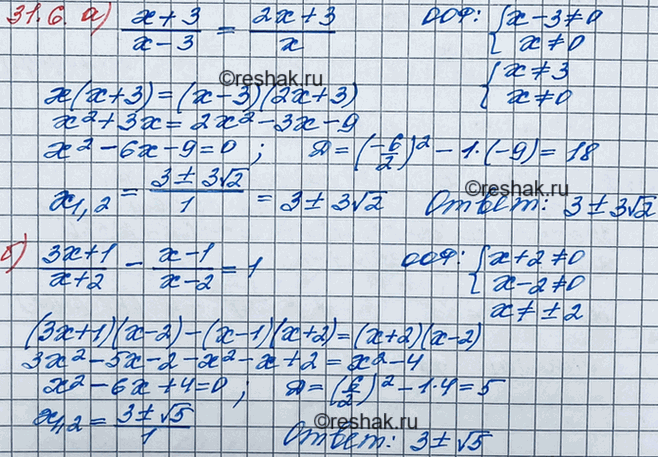 31.6. а) (x+3)/(x-3) = (2x+3)/x    ООФ: { x-3≠0
x≠0
{ x≠3
x≠0
©reshak.ru
x(x+3)=(x-3)(2x+3)
x²+3x=2x²-3x-9
x²-6x-9=0 ; D=(-6/2)²-1·(-9)=18
©reshak.ru
x₁,₂ = (3±3√2)/1 = 3±3√2    Ответ: 3±3√2
б) (3x+1)/(x+2) - (x-1)/(x-2) = 1    ООФ: { x+2≠0
x-2≠0
x≠±2
(3x+1)(x-2)-(x-1)(x+2)=(x+2)(x-2)
3x²-5x-2-x²-x+2=x²-4
x²-6x+4=0 ; D=(6/2)²-1·4=5
©reshak.ru
x₁,₂ = (3±√5)/1    Ответ: 3±√5